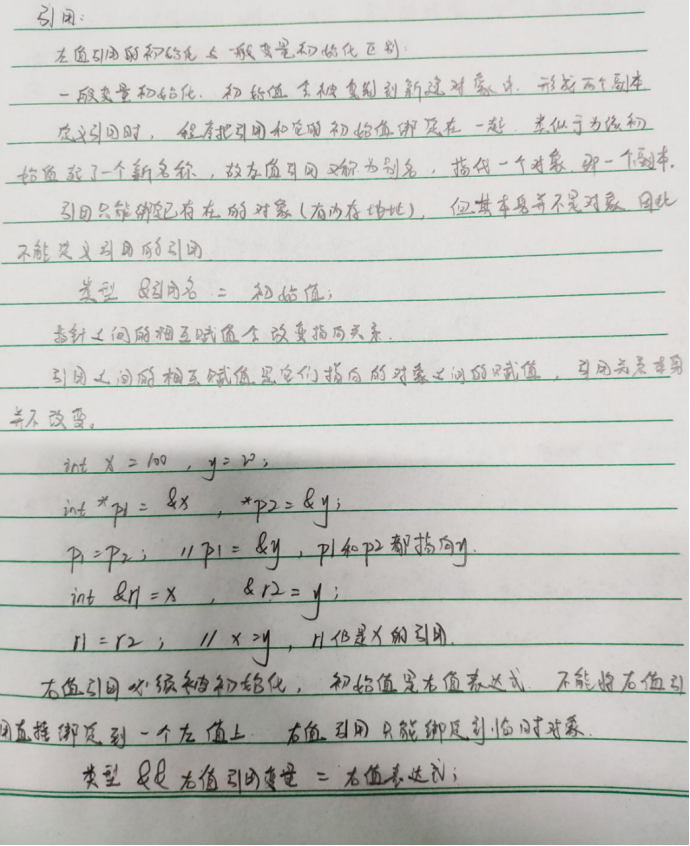 引用:
左值引用的初始化与一般变量初始化区别:
一般变量初始化. 初始值会被复制到新建对象中. 形成两个副本
定义引用时, 程序把引用和它的初始值绑定在一起. 类似于为该初
始值起了一个新名称, 故左值引用又称为别名, 指代一个对象 那一个副本.
引用只能绑定已存在的对象(有内存地址), 但其本身并不是对象 因此
不能定义引用的引用
类型 &引用名 = 初始值;
指针之间的相互赋值会改变指向关系.
引用之间的相互赋值是它们指向的对象之间的赋值, 引用关系本身
并不改变。
int x = 100, y = 20;
int *p1 = &x, *p2 = &y;
p1 = p2; // p1 = &y, p1和p2都指向y.
int &r1 = x, &r2 = y;
r1 = r2; // x=y, r1仍是x的引用.
右值引用必须被初始化, 初始值是右值表达式 不能将右值引
用直接绑定到一个左值上. 右值引用只能绑定到临时对象.
类型 && 右值引用变量 = 右值表达式;